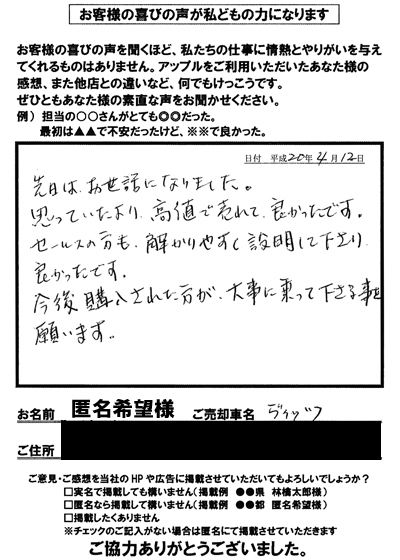 お客様の喜びの声が私どもの力になります
お客様の喜びの声を聞くほど、私たちの仕事に情熱とやりがいを与え
てくれるものはありません。アップルをご利用いただいたあなた様の
感想、また他店との違いなど、何でもけっこうです。
ぜひともあなた様の素直な声をお聞かせください。
例）担当の○○さんがとても◎◎だった。
最初は▲▲で不安だったけど、※※で良かった。
日付 平成20年4月12日
先日は、お世話になりました。
思っていたより、高値で売れて、良かったです。
セールスの方も、解かりやすく説明して下さり
良かったです。
今後購入された方が、大事に乗って下さる事を
願います。
お名前 匿名希望様 ご売却車名
ご住所
ご意見・ご感想を当社のHPや広告に掲載させていただいてもよろしいでしょうか？
□実名で掲載しても構いません（掲載例 ●●県 林檎太郎様）
□匿名なら掲載して構いません（掲載例 ●●都 匿名希望様）
□掲載したくありません
※チェックのご記入がない場合は匿名にて掲載させていただきます
ご協力ありがとうございました。